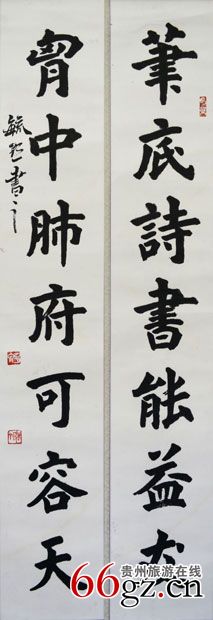 筆底詩書能益
胷中肺府可容天
毓書之
贵州旅游在线
66gz.cn